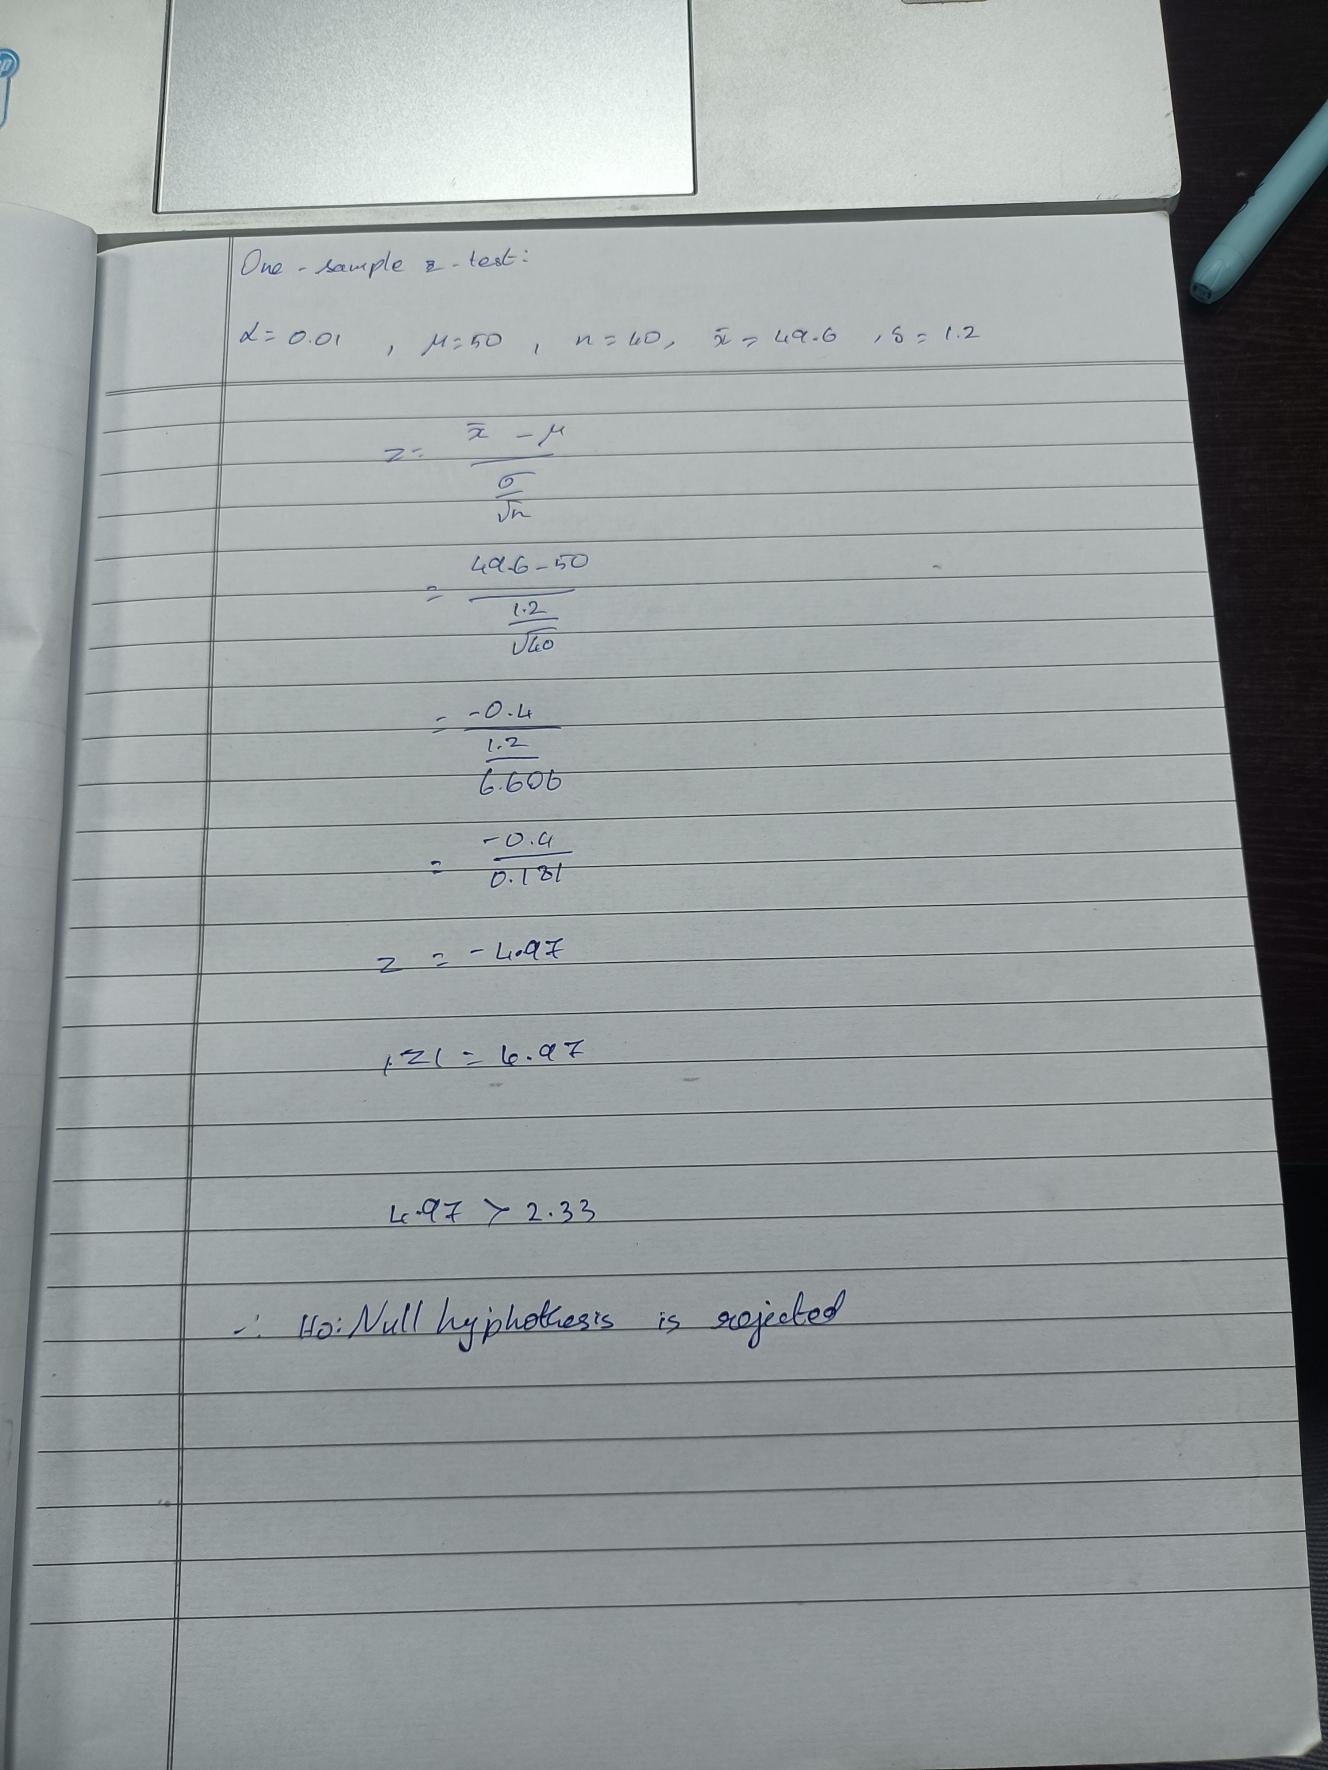 One-sample z-test:
α = 0.01 , μ = 50 , n = 40, x̄ = 49.6 , s = 1.2
z = x̄ - μ
σ
√n
= 49.6 - 50
1.2
√40
= -0.4
1.2
6.606
= -0.4
0.181
z = -4.97
|z| = 4.97
4.97 > 2.33
∴ H0: Null hyphothesis is rejected